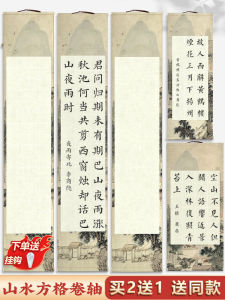 君问归期未有期巴山夜雨涨
秋池何当共剪西窗烛却话巴
山夜雨时
夜雨寄北 李商隐
故人西辞黄鶴樓
煙花三月下揚州
空山不見人但
聞人語響返景
入深林復照青
苔上
王維 鹿柴
下单送
挂钩
山水方格卷轴 买2送1 送同款